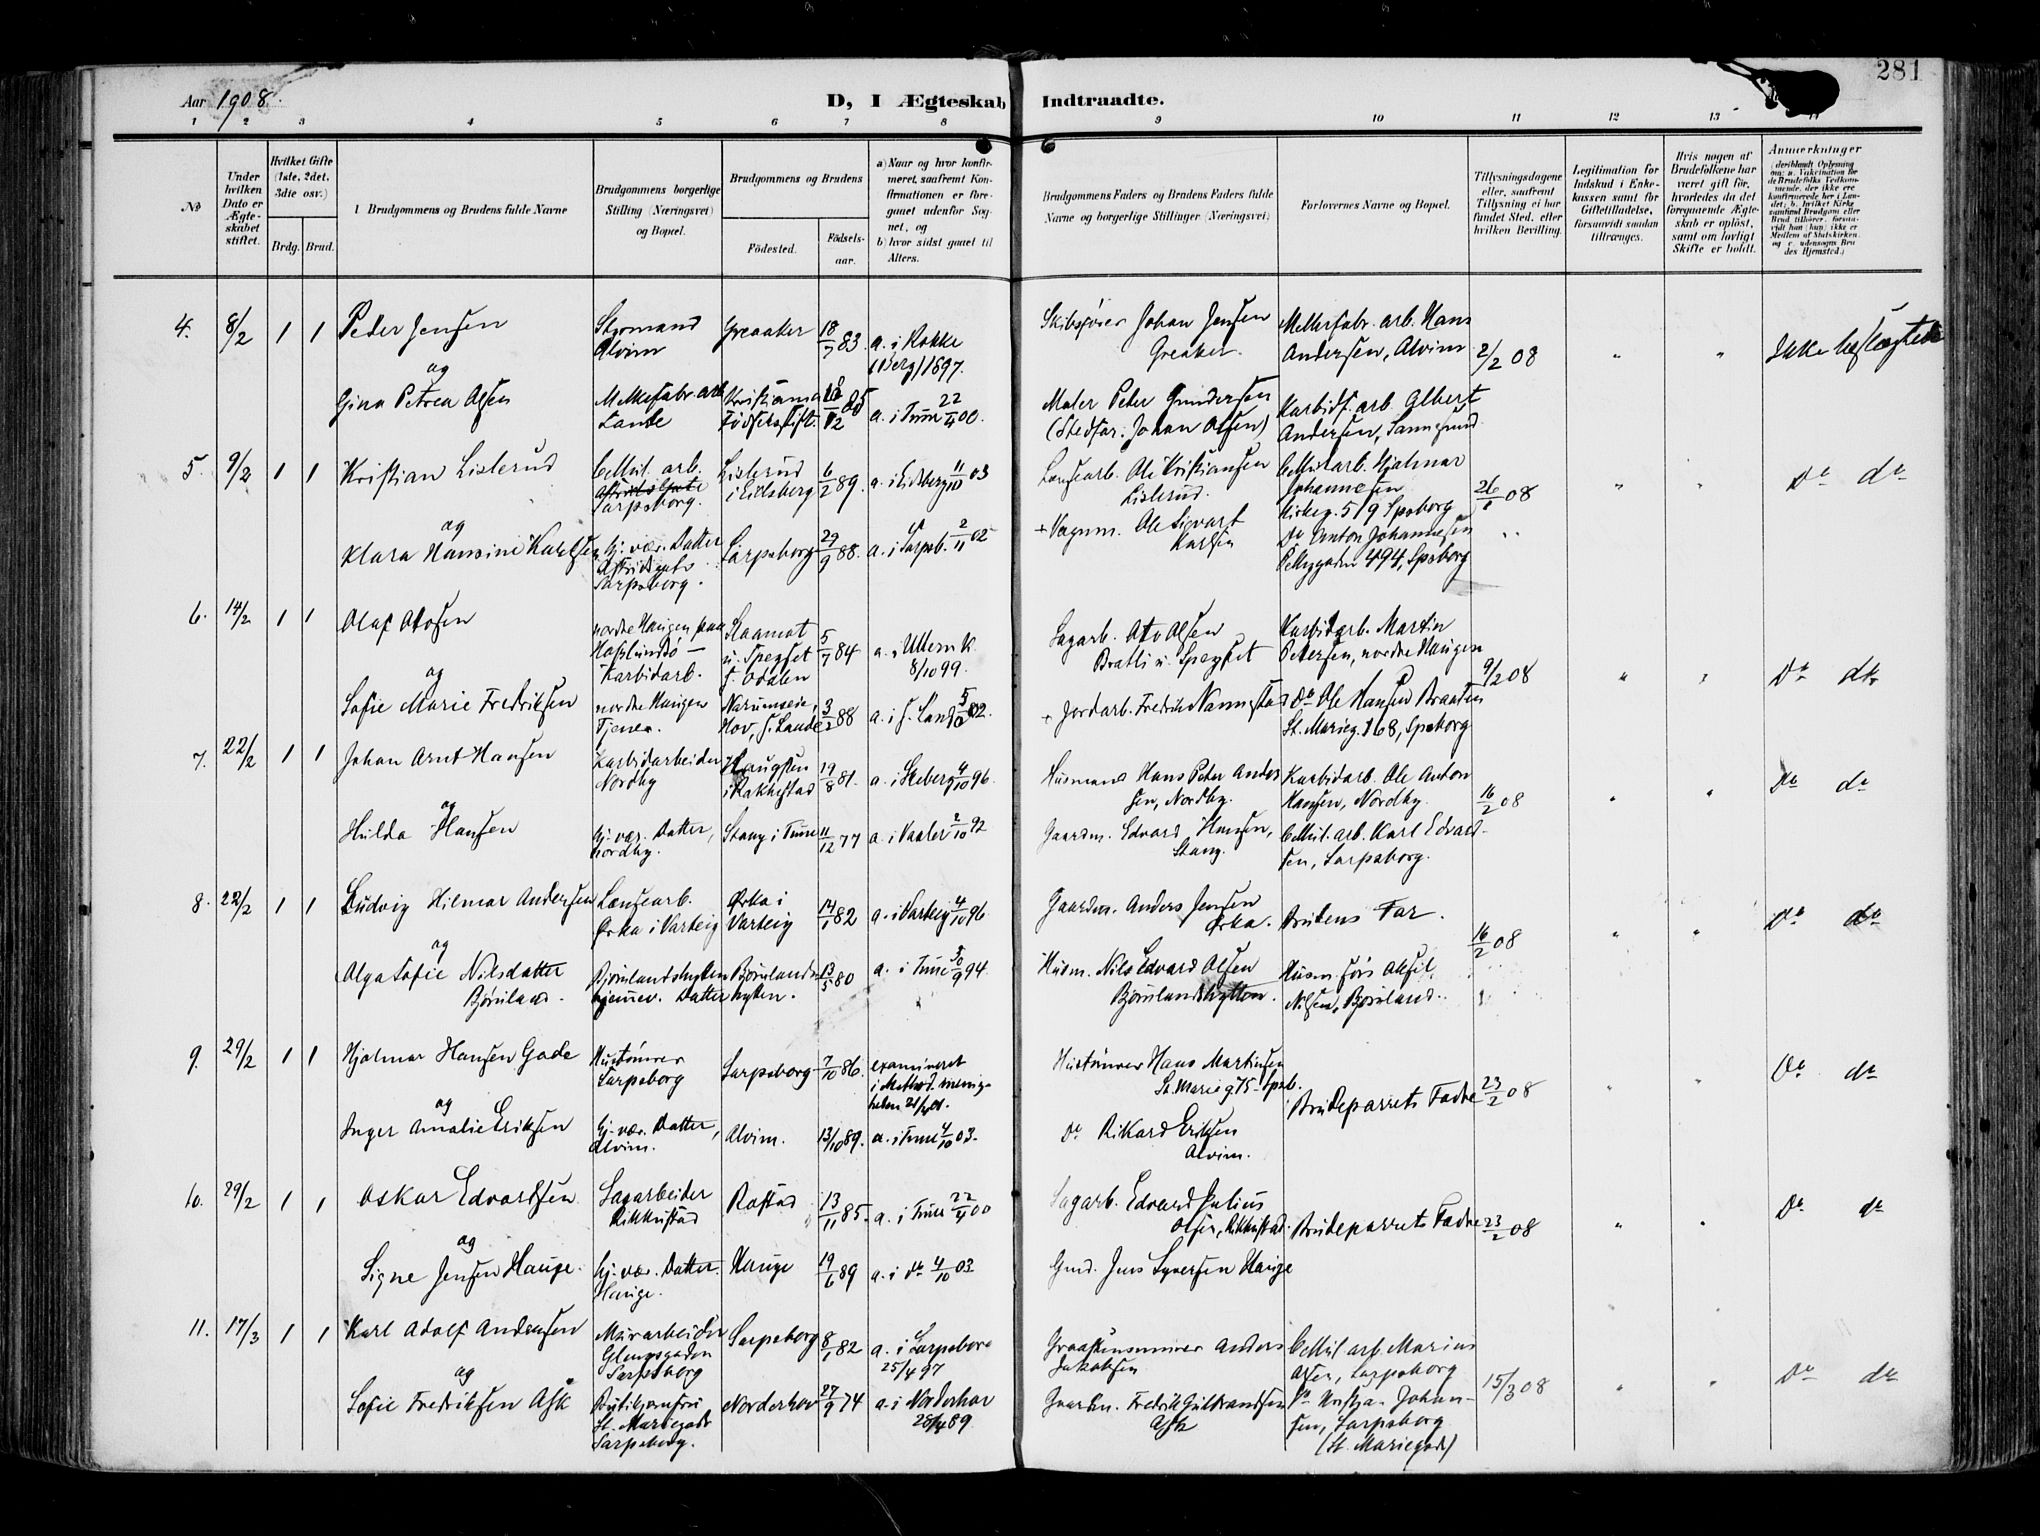 281
Aar 1908.
D, I Ægteskab Indtraadte.
1 2 3 4 5 6 7 8 9 10 11 12 13
№
Under hvilken Dato er Ægteskabet stiftet.
Hvilket Gifte (1ste, 2det, 3die osv.)
Brdg. Brud.
Brudgommens og Brudens fulde Navne
Brudgommens borgerlige Stilling (Næringsvei) og Bopæl.
Brudgommens og Brudens
Födested. Födselsaar.
a) Naar og hvor konfirmeret, saafremt Konfirmationen er foregaaet udenfor Sognet, og
b) hvor sidst gaaet til Alters.
Brudgommens Faders og Brudens Faders fulde Navne og borgerlige Stillinger (Næringsvei)
Forlovernes Navne og Bopæl.
Tillysningsdagene eller, saafremt Tillysning ei har fundet Sted, efter hvilken Bevilling.
Legitimation for Indskud i Enkekassen samt for Giftetilladelse, forsaavidt saadan tiltrænges.
Hvis nogen af Brudefolkene har været gift för, hvorledes da det foregaaende Ægteskab er oplöst, samt om lovligt Skifte er holdt.
Anmerkninger
4. 8/2 1 1 Peder Jensen Styrmand Alvim Greaaker 18/7 83. a. i Rokke (Berg) 1897. Skibsfører Johan Jensen Greaker. Melkefabr. arb. Hans Andersen, Alvim 2/2 08 " " Ikke beslægtede
og
Gina Petrea Olsen Melkefabr. arb. Lande Kristiania Fødselsstift. 85 a. i Tune 22/4 00. Maler Peter Gundersen (Stedfar: Johan Olsen) Karbidf. arb. Albert Andersen, Sannesund
5. 9/2 1 1 Kristian Lislerud Cellul. arb. Sarpsborg. Lislerud i Eidsberg 6/2 89. a. i Eidsberg 11/10 03 Løusearb. Ole Kristiansen Lislerud. Cellul. arb. Hjalmar Johannesen Kirkeg. 519 Spsborg 26/1 08 " " Do do
og
Klara Hansine Karlsen Hj. vær. Datter Astridsgate Sarpsborg. Sarpsborg 29/9 88. a. i Sarpsb. 2/11 02 + Vognm. Ole Sigvart Karlsen Do Anton Johannesen Pellygaden 494, Spsborg
6. 14/2 1 1 Olaf Olsen nordre Haugen paa Haslundsø — Karbidarb. Slaamot u. Spegset S. Odalen 5/7 84 a. i Ullern K. 8/10 99. Sagarb. Otto Olsen Bratli u. Spegset Karbidarb. Martin Petersen, nordre Haugen 9/2 08 " " Do do
og
Sofie Marie Fredriksen nordre Haugen Tjener. Narumseie, Hov, S. Lande 3/2 88 a. i S. Land 02. + Jordarb. Fredrik Narumstad Do Ole Hansen Braaten St. Marieg. 168, Spsborg
7. 22/2 1 1 Johan Arnt Hansen Karbidarbeider Nordby Haugsten i Rakkestad 19/8 81. a. i Skeberg 4/10 96. Husmand Hans Peter Andersen, Nordby. Karbidarb. Ole Anton Hansen, Nordby. 16/2 08 " " Do do
og
Hilda Hansen Hj. vær. Datter, Nordby. Stang i Tune 11/12 77 a. i Vaaler 2/10 92 Gaardm. Edvard Hansen, Stang. Cellul. arb. Karl Edvardsen, Sarpsborg.
8. 22/2 1 1 Ludvig Hilmar Andersen Løusearb. Ørka i Varteig Ørka i Varteig 14/1 82 a. i Varteig 4/10 96 Gaardm. Anders Jensen Ørka. Brudens Far. 16/2 08 " " Do do
og
Olga Sofie Nilsdatter Bjørnland. Bjørnlandshytten hjemmev. Datter Bjørnlandshytten. 13/5 80 a. i Tune 30/9 94. Husm. Nils Edvard Olsen Bjørnlandshytten. Husm. søn Aksel Nilsen, Bjørnland.
9. 29/2 1 1 Hjalmar Hansen Gade Hustømrer Sarpsborg Sarpsborg 7/10 86. examineret i Method. menigheden Hustømrer Hans Martinsen St. Marieg 75 Spsb. Brudeparrets Fædre 23/2 08 " " Do do
og
Inger Amalie Eriksen Hj. vær. Datter, Alvim. Alvim. 13/10 89. a. i Tune 4/10 03. Do Rikard Eriksen Alvim.
10. 29/2 1 1 Oskar Edvardsen Sagarbeider Rikkustad Rostad 13/11 85. a. i Tune 22/4 00 Sagarb. Edvard Julius Olsen, Rikkustad. Brudeparrets Fædre 23/2 08 " " Do do
og
Signe Jensen Hauge. Hj. vær. Datter. Hauge. Hauge 19/6 89 a. i do 4/10 03 Gmd. Jens Syversen Hauge
11. 17/3 1 1 Karl Adolf Andersen Murarbeider Glengsgaden Sarpsborg Sarpsborg 8/1 82 a. i Sarpsborg 25/4 97 Graastensmurer Anders Jakobsen Cellul arb. Marius Olsen, Sarpsborg 15/3 08 " " Do do
og
Sofie Fredriksen Ask St. Mariegade Sarpsborg. Norderhov 27/9 74 a. i Norderhov 28/4 89. Gaardm. Fredrik Gulbrandsen Ask Do Kristja. Johansen, Sarpsborg (St. Mariegade)